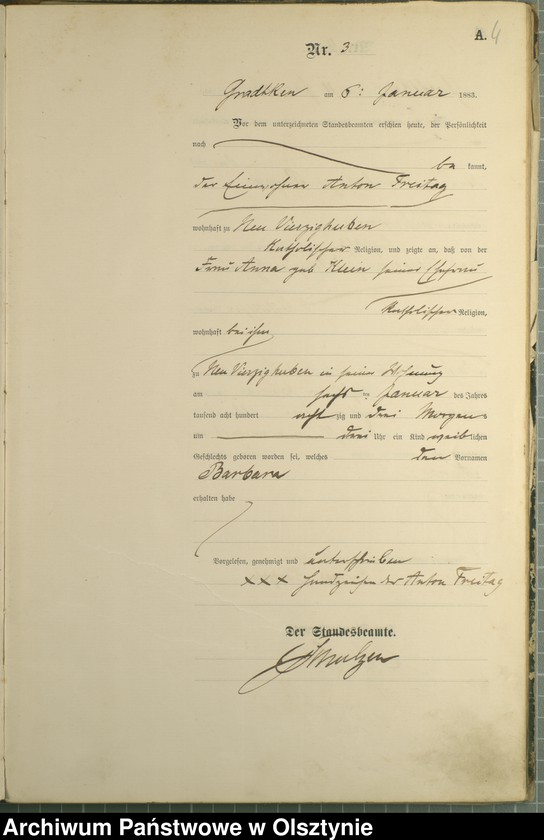 A. 4
Nr. 3
Gradtken am 6: Januar 1883.
Vor dem unterzeichneten Standesbeamten erschien heute, der Persönlichkeit
nach
be kannt,
der Einwohner Anton Freitag
wohnhaft zu Neu Vierzighuben
katholischer Religion, und zeigte an, daß von der
Frau Anna geb Klein seiner Ehefrau
katholischer Religion,
wohnhaft bei ihm
zu Neu Vierzighuben in seiner Wohnung
am sechs ten Januar des Jahres
tausend acht hundert acht zig und drei Morgens
um drei Uhr ein Kind weib lichen
Geschlechts geboren worden sei, welches den Vornamen
Barbara
erhalten habe
Vorgelesen, genehmigt und unterschrieben
XXX Handzeichen des Anton Freitag
Der Standesbeamte.
Archiwum Państwowe w Olsztynie